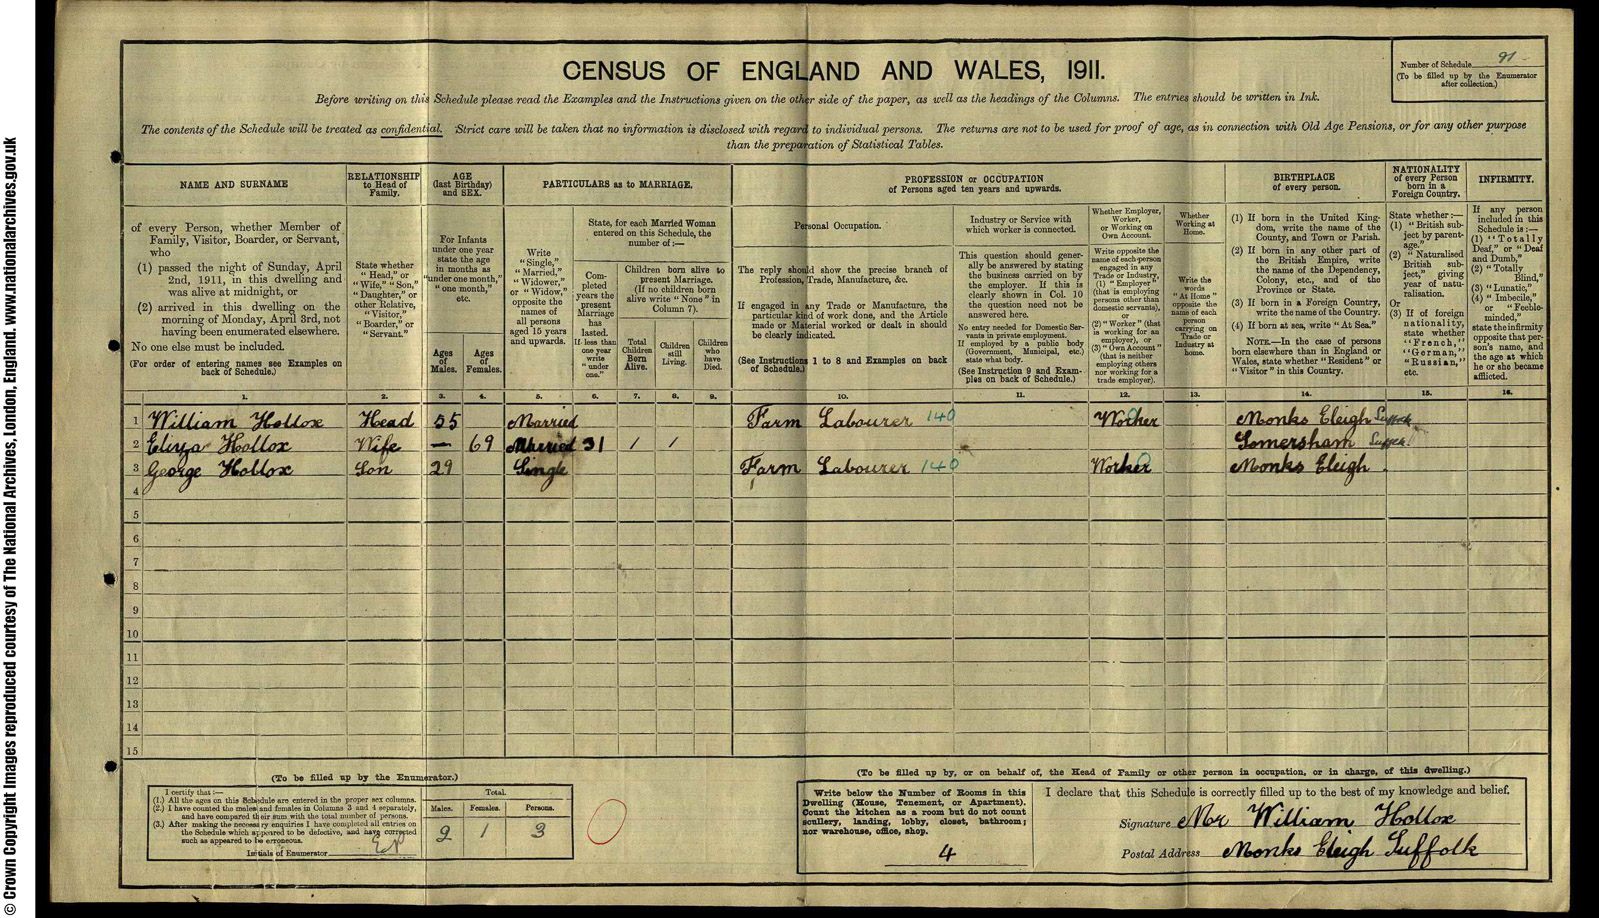 © Crown Copyright Images reproduced courtesy of The National Archives, London, England. www.nationalarchives.gov.uk
CENSUS OF ENGLAND AND WALES, 1911.
Number of Schedule 91
(To be filled up by the Enumerator
after collection.)
Before writing on this Schedule please read the Examples and the Instructions given on the other side of the paper, as well as the headings of the Columns. The entries should be written in Ink.
The contents of the Schedule will be treated as confidential. Strict care will be taken that no information is disclosed with regard to individual persons. The returns are not to be used for proof of age, as in connection with Old Age Pensions, or for any other purpose
than the preparation of Statistical Tables.
NAME AND SURNAME
of every Person, whether Member of
Family, Visitor, Boarder, or Servant,
who
(1) passed the night of Sunday, April
2nd, 1911, in this dwelling and
was alive at midnight, or
(2) arrived in this dwelling on the
morning of Monday, April 3rd, not
having been enumerated elsewhere.
No one else must be included.
(For order of entering names see Examples on
back of Schedule.)
RELATIONSHIP
to Head of
Family.
State whether
"Head," or
"Wife," "Son,"
"Daughter," or
other Relative,
"Visitor,"
"Boarder," or
"Servant."
AGE
(last Birthday)
and SEX.
For Infants
under one year
state the age
in months as
"under one month,"
"one month,"
etc.
Ages
of
Males.
Ages
of
Females.
PARTICULARS as to MARRIAGE.
Write
"Single,"
"Married,"
"Widower,"
or "Widow,"
opposite the
names of
all persons
aged 15 years
and upwards.
State, for each Married Woman
entered on this Schedule, the
number of:—
Com-
pleted
years the
present
Marriage
has
lasted.
If less than
one year
write
"under
one."
Children born alive to
present Marriage.
(If no children born
alive write "None" in
Column 7).
Total
Children
Born
Alive.
Children
still
Living.
Children
who
have
Died.
PROFESSION or OCCUPATION
of Persons aged ten years and upwards.
Personal Occupation.
The reply should show the precise branch of
Profession, Trade, Manufacture, &c.
If engaged in any Trade or Manufacture, the
particular kind of work done, and the Article
made or Material worked or dealt in should
be clearly indicated.
(See Instructions 1 to 8 and Examples on back
of Schedule.)
Industry or Service with
which worker is connected.
This question should gener-
ally be answered by stating
the business carried on by
the employer. If this is
clearly shown in Col. 10
the question need not be
answered here.
No entry needed for Domestic Ser-
vants in private employment.
If employed by a public body
(Government, Municipal, etc.)
state what body.
(See Instruction 9 and Exam-
ples on back of Schedule.)
Whether Employer,
Worker,
or Working on
Own Account.
Write opposite the
name of each person
engaged in any
Trade or Industry,
(1) "Employer"
(that is employing
persons other than
domestic servants),
or
(2) "Worker" (that
is working for an
employer), or
(3) "Own Account"
(that is neither
employing others
nor working for a
trade employer).
Whether
Working at
Home.
Write the
words
"At Home"
opposite the
name of each
person
carrying on
Trade or
Industry at
home.
BIRTHPLACE
of every person.
(1) If born in the United King-
dom, write the name of the
County, and Town or Parish.
(2) If born in any other part of
the British Empire, write
the name of the Dependency,
Colony, etc., and of the
Province or State.
(3) If born in a Foreign Country,
write the name of the Country.
(4) If born at sea, write "At Sea."
NOTE.—In the case of persons
born elsewhere than in England or
Wales, state whether "Resident" or
"Visitor" in this Country.
NATIONALITY
of every Person
born in a
Foreign Country.
State whether:—
(1) "British sub-
ject by parent-
age."
(2) "Naturalised
British sub-
ject," giving
year of natu-
ralisation.
Or
(3) If of foreign
nationality,
state whether
"French,"
"German,"
"Russian,"
etc.
INFIRMITY.
If any person
included in this
Schedule is:—
(1) "Totally
Deaf," or "Deaf
and Dumb,"
(2) "Totally
Blind,"
(3) "Lunatic,"
(4) "Imbecile,"
or "Feeble-
minded,"
state the infirmity
opposite that per-
son's name, and
the age at which
he or she became
afflicted.
1. 2. 3. 4. 5. 6. 7. 8. 9. 10. 11. 12. 13. 14. 15. 16.
1 William Hollox Head 55 Married Farm Labourer 140 Worker Monks Eleigh Suffolk
2 Eliza Hollox Wife — 69 Married 31 1 1 Somersham Suffolk
3 George Hollox Son 29 Single Farm Labourer 140 Worker Monks Eleigh
4
5
6
7
8
9
10
11
12
13
14
15
(To be filled up by the Enumerator.)
I certify that:—
(1.) All the ages on this Schedule are entered in the proper sex columns.
(2.) I have counted the males and females in Columns 3 and 4 separately,
and have compared their sum with the total number of persons.
(3.) After making the necessary enquiries I have completed all entries on
the Schedule which appeared to be defective, and have corrected
such as appeared to be erroneous.
Initials of Enumerator
Total.
Males. Females. Persons.
2 1 3
0
(To be filled up by, or on behalf of, the Head of Family or other person in occupation, or in charge, of this dwelling.)
Write below the Number of Rooms in this
Dwelling (House, Tenement, or Apartment).
Count the kitchen as a room but do not count
scullery, landing, lobby, closet, bathroom;
nor warehouse, office, shop.
4
I declare that this Schedule is correctly filled up to the best of my knowledge and belief.
Signature Mr William Hollox
Postal Address Monks Eleigh Suffolk